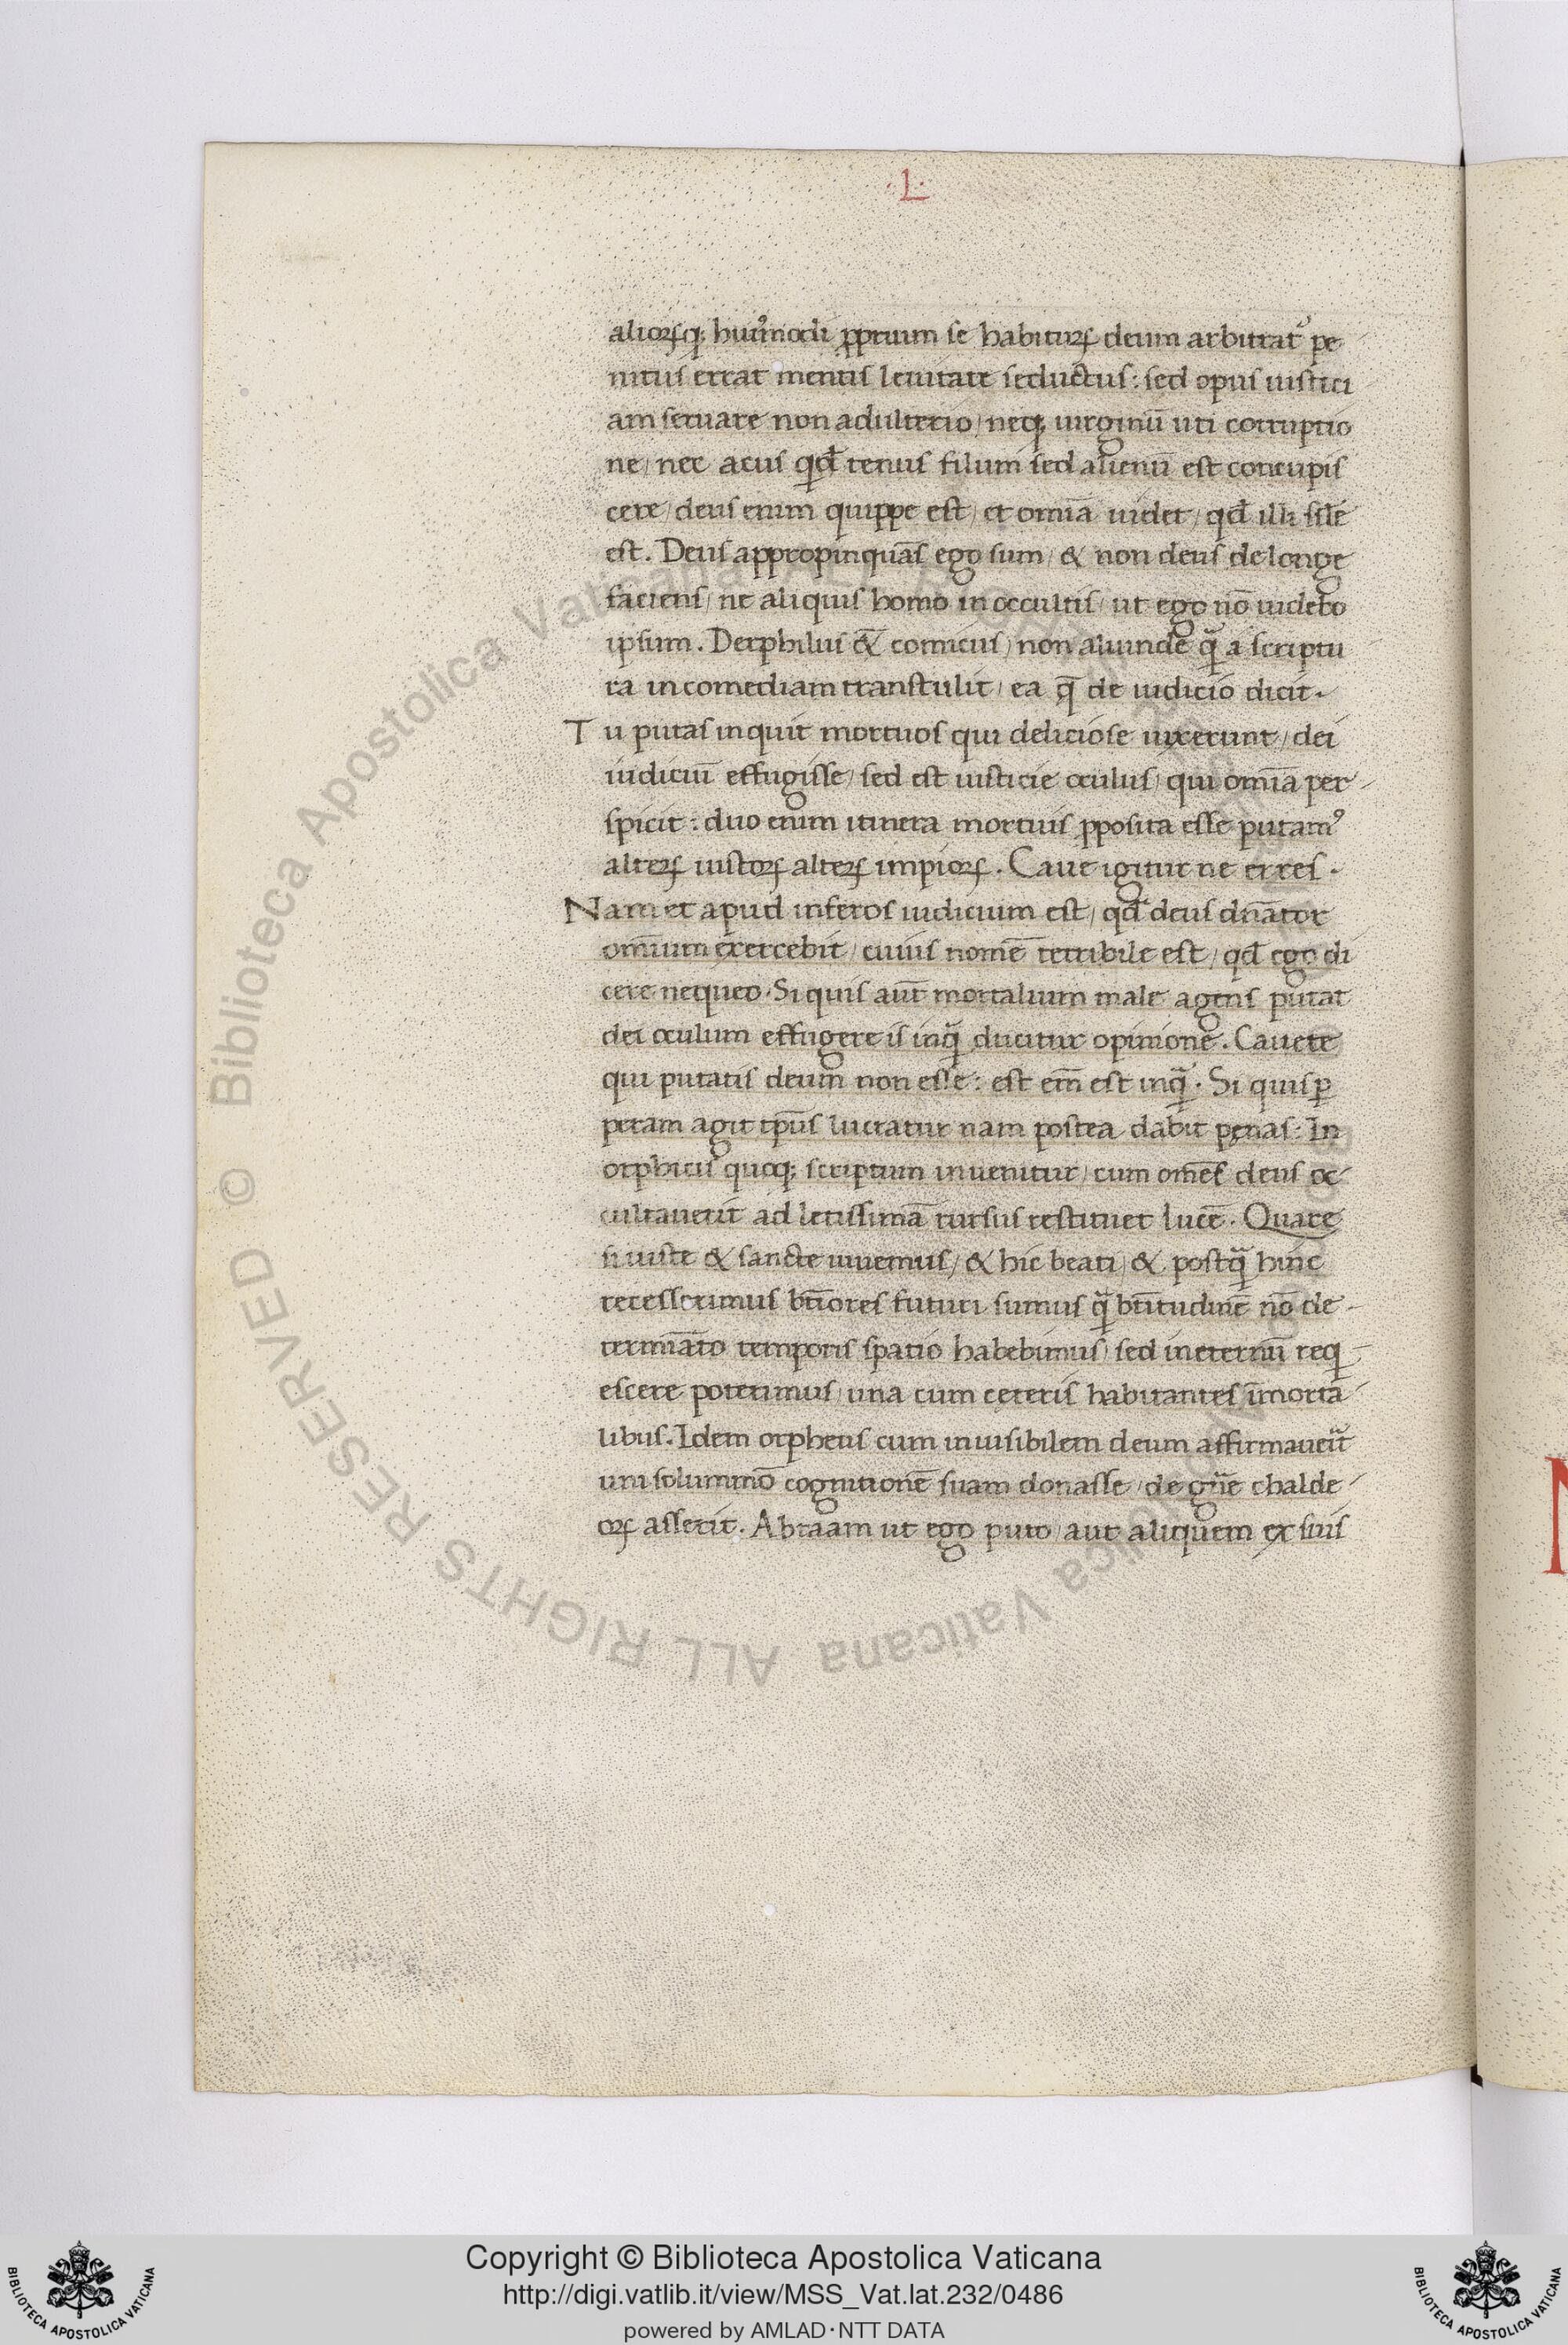 ·L·
alioꝝq; huiꝰmodi ꝓpitium se habituꝝ deum arbitrat᷑ pe
nitus errat mentis leuitate seductus: sed opus iustici
am seruare non adulterio/ neq; uirginū uti corruptio
ne/ nec acus qd̄ tenus filum sed alienū est concupis
cere/ deus enim quippe est/ et omīa uidet/ qd̄ illi sīle
est. Deus appropinquās ego sum/ & non deus de longe
faciens/ ne aliquis homo in occultis/ ut ego nō uidebo
ipsum. Derphilus &̄ comicus/ non aliunde qᷓ a scriptu
ra in comediam transtulit/ ea q̄ de iudicio dicit.
Tu putas inquit mortuos qui deliciose uixerunt/ dei
iudiciū effugisse/ sed est iusticie oculus/ qui omīa per
spicit: duo enim itinera mortuis ꝓposita esse putamꝰ
alteꝝ iustoꝝ alteꝝ impioꝝ. Caue igitur ne erres.
Nam et apud inferos iudicium est/ qd̄ deus dn̄ator
omīum exercebit/ cuius nomē terribile est/ qd̄ ego di
cere nequeo. Si quis aūt mortalium male agens putat
dei oculum effugere is inqᷓ ducitur opinione. Cauete
qui putatis deum non esse: est em̄ est inqᷓ. Si quis ꝑ
peram agit tp̄us lucratur nam postea dabit pęnas: In
orphicis quoq; scriptum inuenitur/ cum om̄es deus oc
cultauerit ad letissimā rursus restituet lucē. Quare
si iuste & sancte uiuemus/ & hic beati/ & postqᷓ hinc
recesserimus bt̄iores futuri sumus qᷓ bt̄itudinē nō de
termīato temporis spatio habebimus/ sed in eternū reqi
escere poterimus/ una cum cęteris habitantes īmorta
libus. Idem orpheus cum inuisibilem deum affirmaueīt
uni solummō cognitionē suam donasse/ de gn̄e chalde
oꝝ asserit. Abraam ut ego puto/ aut aliquem ex suis
N
Copyright © Biblioteca Apostolica Vaticana
http://digi.vatlib.it/view/MSS_Vat.lat.232/0486
powered by AMLAD·NTT DATA
BIBLIOTECA APOSTOLICA VATICANA
BIBLIOTECA APOSTOLICA VATICANA
© Biblioteca Apostolica Vaticana ALL RIGHTS RESERVED